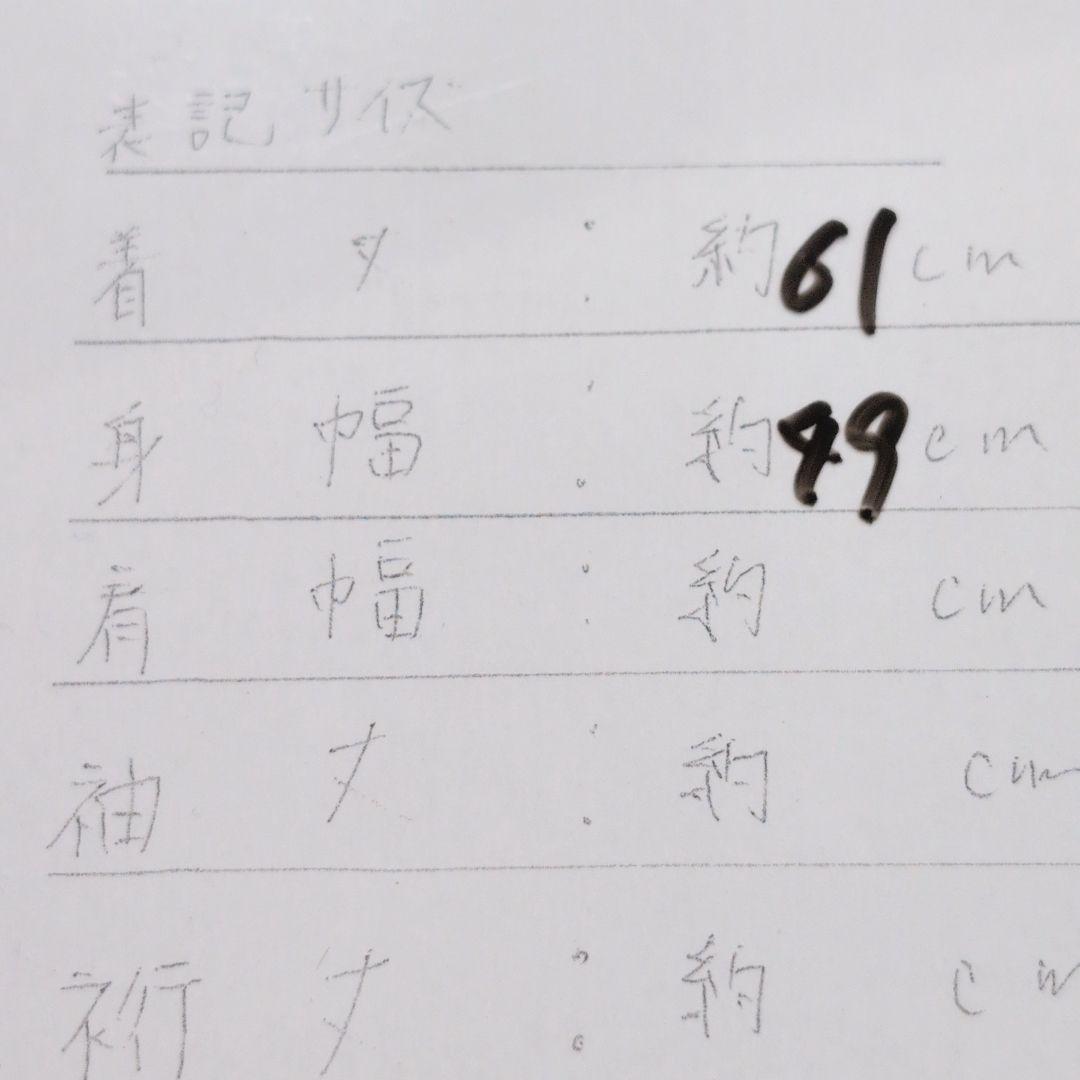 表記サイズ
着 丈 : 約61cm
身 幅 : 約49cm
肩 幅 : 約 cm
袖 丈 : 約 cm
裄 丈 : 約 cm